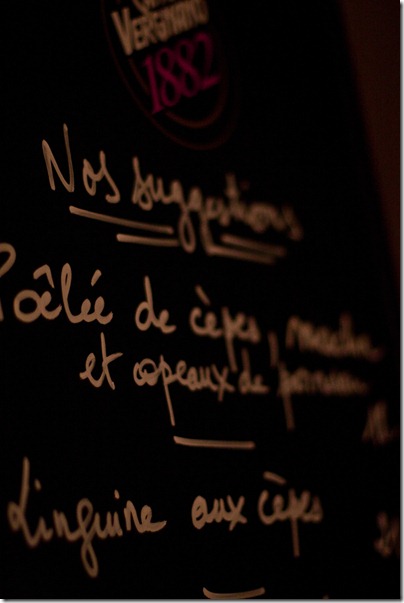 VERGNANO
1882
Nos suggestions
Poêlée de cèpes,
et copeaux de
Linguine aux cèpes